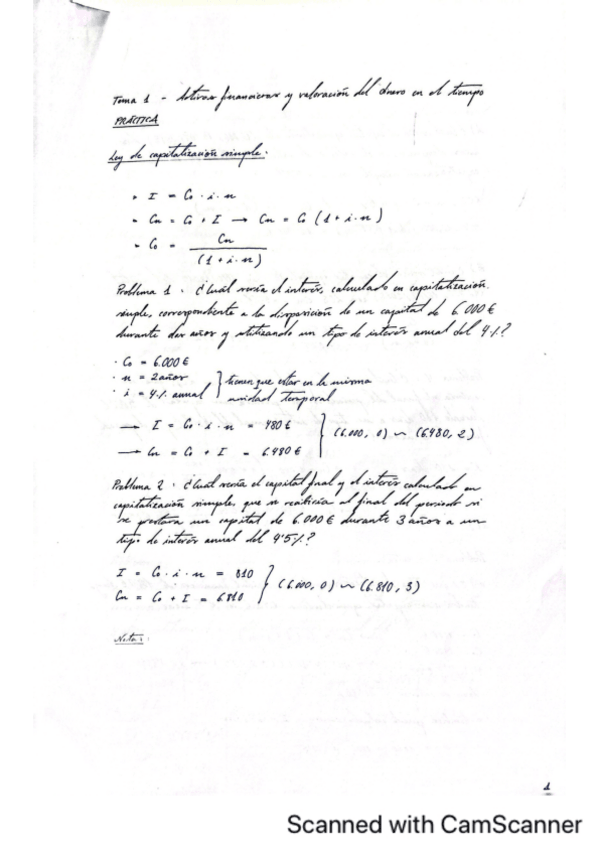 Tema 1 - Activos financieros y valoración del dinero en el tiempo
PRÁCTICA
Ley de capitalización simple:
• I = C₀ · i · n
• Cn = C₀ + I → Cn = C₀ (1 + i · n)
• C₀ = Cn / (1 + i · n)
Problema 1. ¿Cuál sería el interés, calculado en capitalización
simple, correspondiente a la disposición de un capital de 6.000 €
durante dos años y utilizando un tipo de interés anual del 4%?
· C₀ = 6.000 €
· n = 2 años
· i = 4% anual } tienen que estar en la misma
unidad temporal
→ I = C₀ · i · n = 480 €
→ Cn = C₀ + I = 6.480 € } (6.000, 0) ~ (6.480, 2)
Problema 2. ¿Cuál sería el capital final y el interés calculado en
capitalización simple, que se recibiría al final del periodo si
se prestara un capital de 6.000 € durante 3 años a un
tipo de interés anual del 4'5%?
I = C₀ · i · n = 810
Cn = C₀ + I = 6810 } (6.000, 0) ~ (6.810, 3)
Nota:
1
Scanned with CamScanner